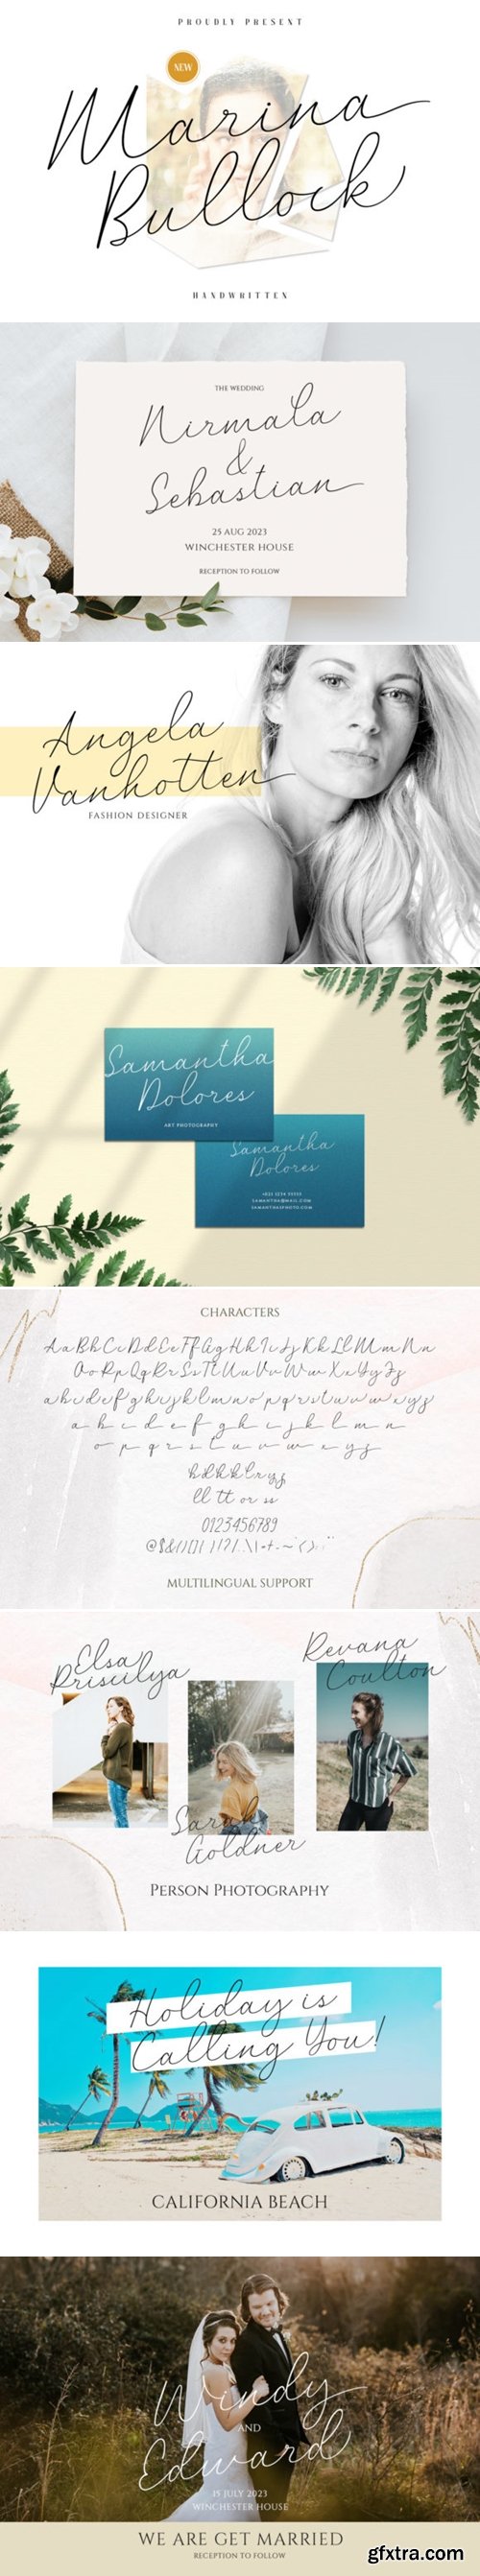 PROUDLY PRESENT
NEW
Marina
Bullock
HANDWRITTEN
THE WEDDING
Nirmala
&
Sebastian
25 AUG 2023
WINCHESTER HOUSE
RECEPTION TO FOLLOW
Angela
Vanhotten
FASHION DESIGNER
Samantha
Dolores
ART PHOTOGRAPHY
Samantha
Dolores
SAMANTHA@MAIL.COM
SAMANTHASPHOTO.COM
CHARACTERS
AaBbCcDdEeFfGgHhIiJjKkLlMmNn
OoPpQqRrSsTtUuVvWwXxYyZz
abcdefghijklmnopqrstuvwxyz
a b c d e f g h i j k l m n
o p q r s t u v w x y z
ll tt or ss
0123456789
MULTILINGUAL SUPPORT
Elsa
Priscilya
Revana
Coulton
Sarah
Goldner
PERSON PHOTOGRAPHY
Holiday is
Calling You!
CALIFORNIA BEACH
Windy
AND
Edward
15 JULY 2023
WINCHESTER HOUSE
WE ARE GET MARRIED
RECEPTION TO FOLLOW
gfxtra.com